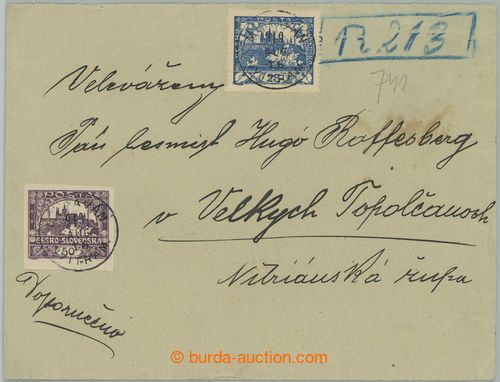 POSTA
ČESKO-SLOVENSKÁ
25
R 213
741
Velevážený
Pán lesmist Hugó Raffesberg
v Velkych Topolčanoch
Nitrianská župa
POSTA
ČESKO-SLOVENSKÁ
50
Doporučeno
© burda-auction.com